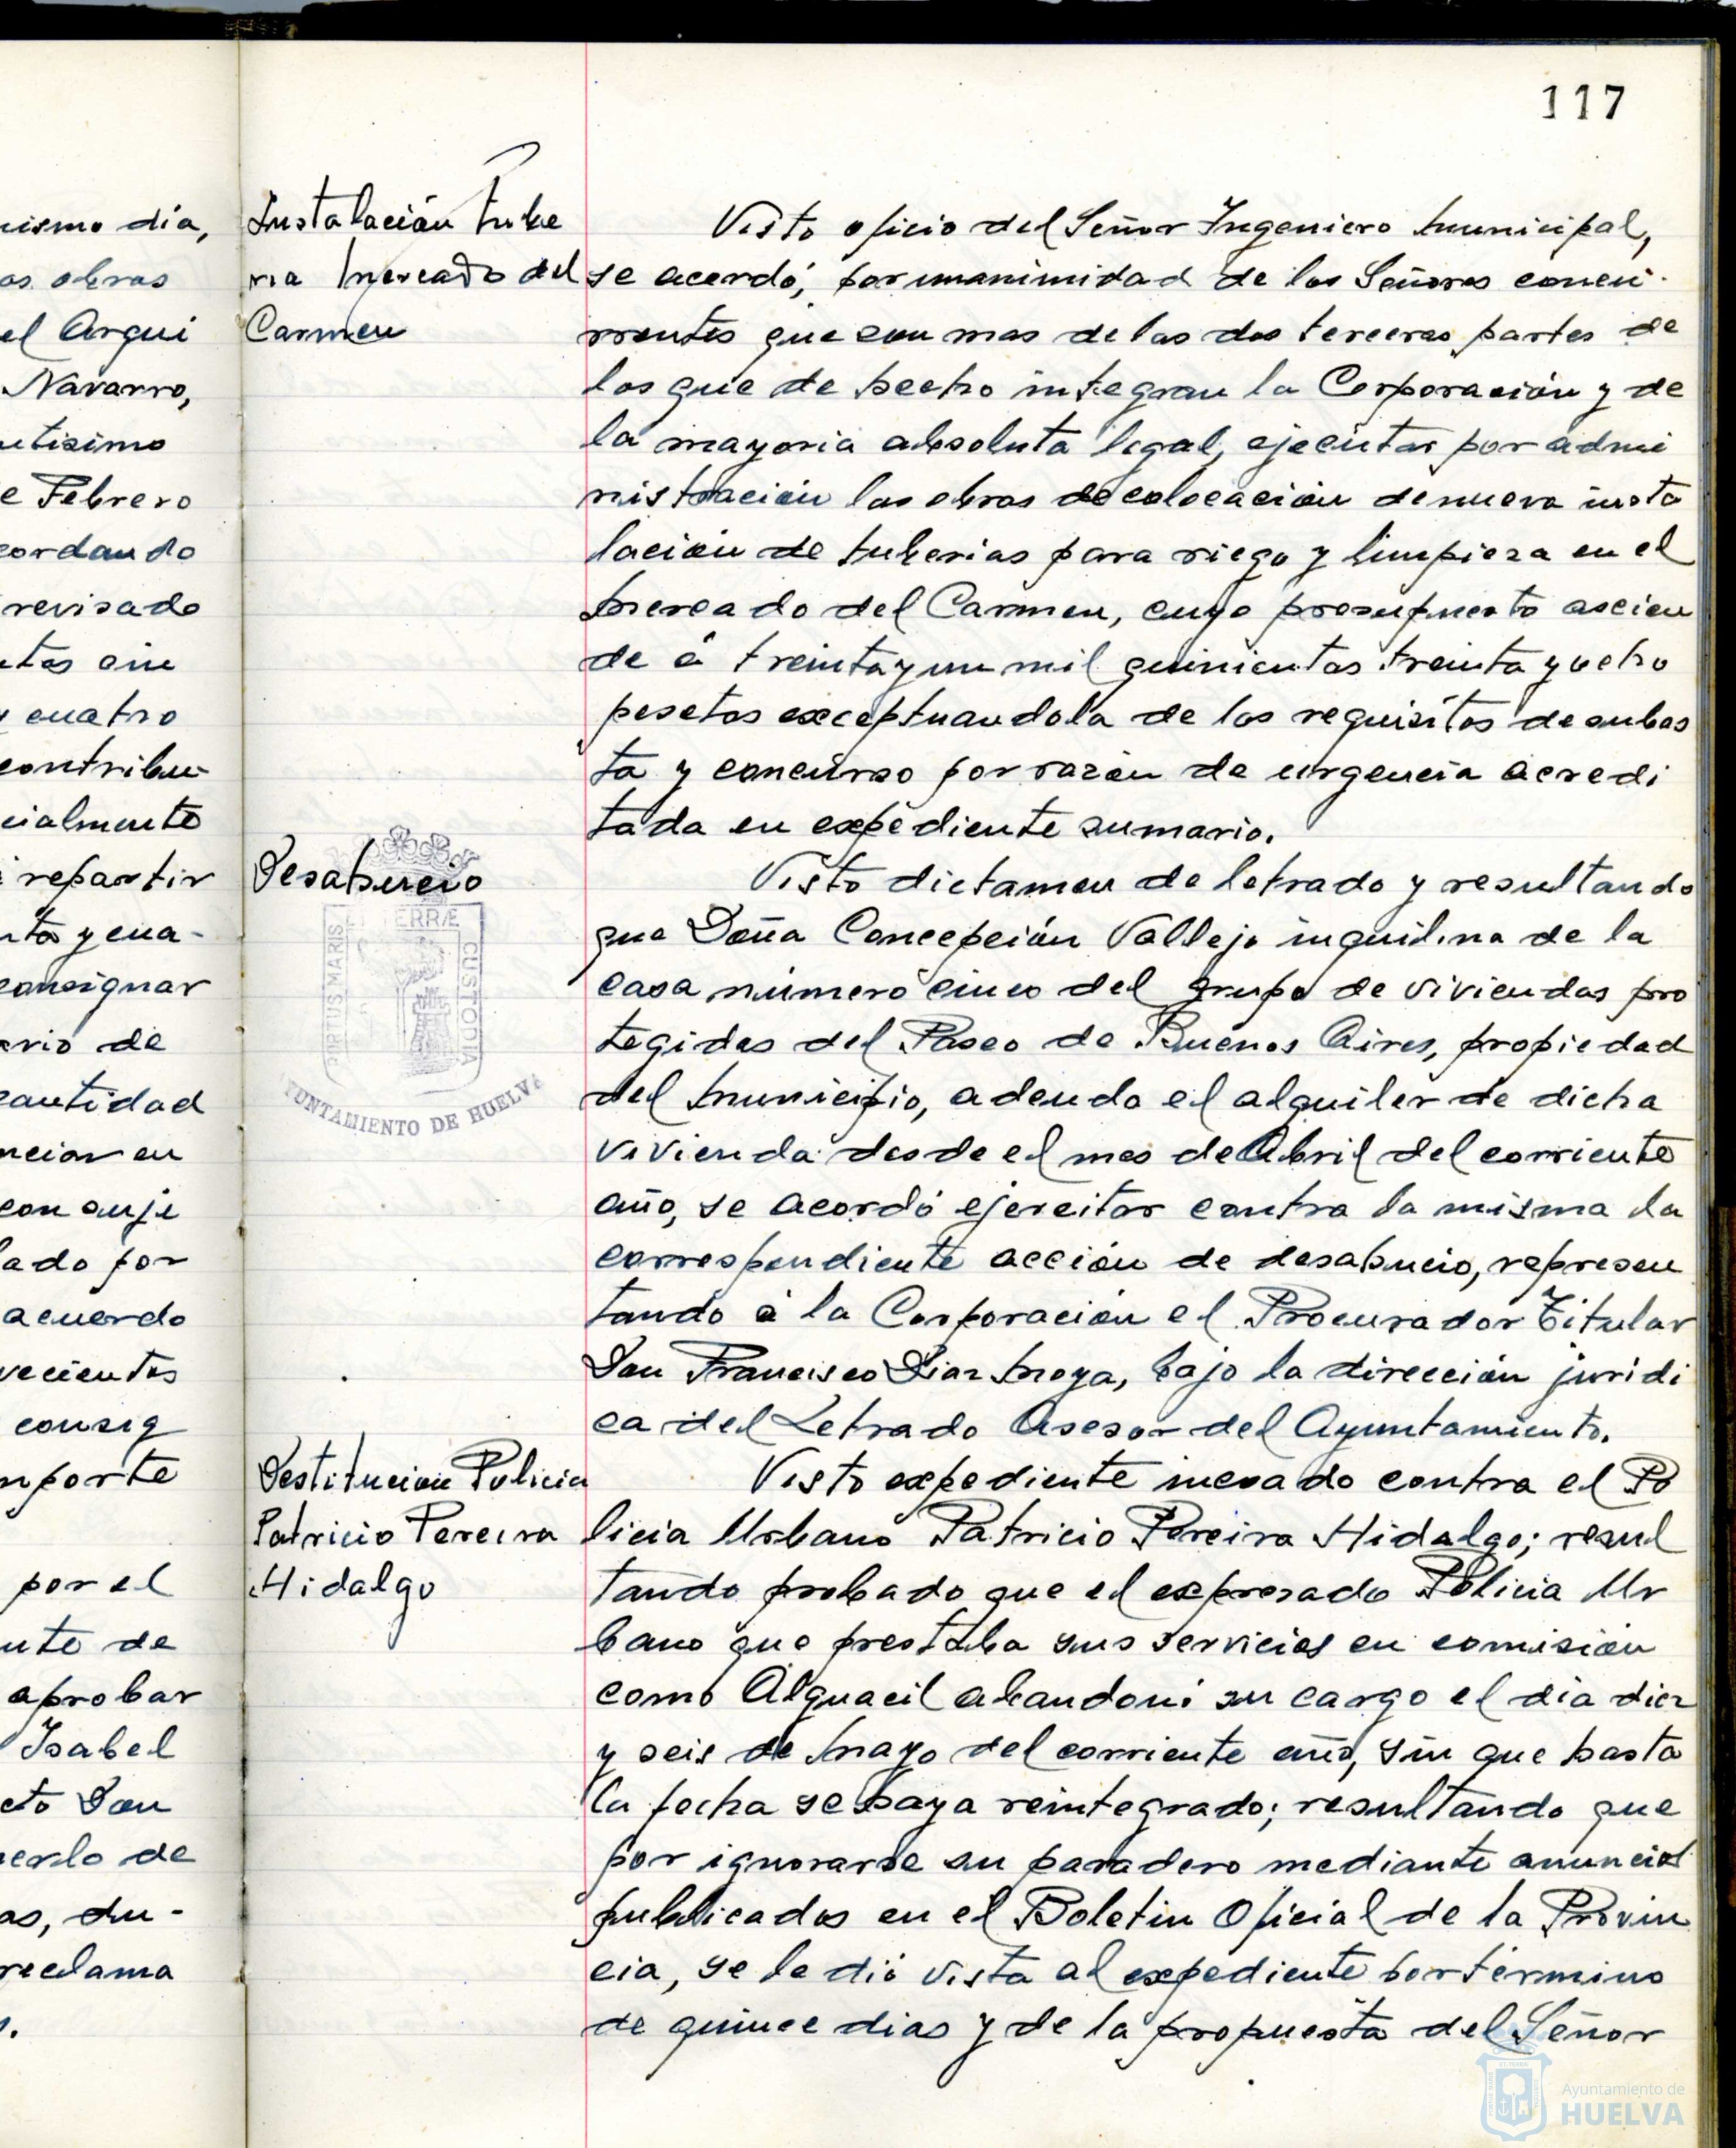 117
nismo día,
as obras
el Arqui
Navarro,
utisimo
e Febrero
cordando
revisado
tas cin
y cuatro
contribu-
cialmente
repartir
nta y cua-
consignar
ario de
cantidad
nciar en
con suje
lado por
acuerdo
vecientas
consig
mporte
por el
nte de
aprobar
Isabel
cto Don
uerlo de
as, du-
reclama
Instalación tube
ria Mercado del
Carmen
Visto oficio del Señor Ingeniero Municipal,
se acordó, por unanimidad de los Señores concu-
rrentes que son mas de las dos terceras partes de
los que de hecho integran la Corporación y de
la mayoria absoluta legal, ejecutar por admi
nistración las obras de colocación de nueva insta
lación de tuberias para riego y limpieza en el
Mercado del Carmen, cuyo presupuesto ascien
de á treinta y un mil quinientas treinta y ocho
pesetas exceptuandola de los requisitos de subas
ta y concurso por razón de urgencia acredi
tada en expediente sumario.
Desahucio
Visto dictamen de letrado y resultando
que Doña Concepción Vallejo inquilina de la
casa número cinco del grupo de viviendas pro
tegidas del Paseo de Buenos Aires, propiedad
del Municipio, adeuda el alquiler de dicha
vivienda desde el mes de Abril del corriente
año, se acordó ejercitar contra la misma la
correspondiente acción de desahucio, represen
tando á la Corporación el Procurador Titular
Don Francisco Diaz Moya, bajo la dirección juridi
ca del Letrado Asesor del Ayuntamiento.
PORTUS MARIS ET TERRÆ CUSTODIA
YUNTAMIENTO DE HUELVA
Destitucion Policia
Patricio Pereira
Hidalgo
Visto expediente incoado contra el Po
licia Urbano Patricio Pereira Hidalgo; resul
tando probado que el expresado Policia Ur
bano que prestaba sus servicios en comisión
como Alguacil abandonó su cargo el día diez
y seis de Mayo del corriente año, sin que hasta
la fecha se haya reintegrado; resultando que
por ignorarse su paradero mediante anuncios
publicados en el Boletin Oficial de la Provin
cia, se le dió vista al expediente por término
de quince dias y de la propuesta del Señor
Ayuntamiento de
HUELVA